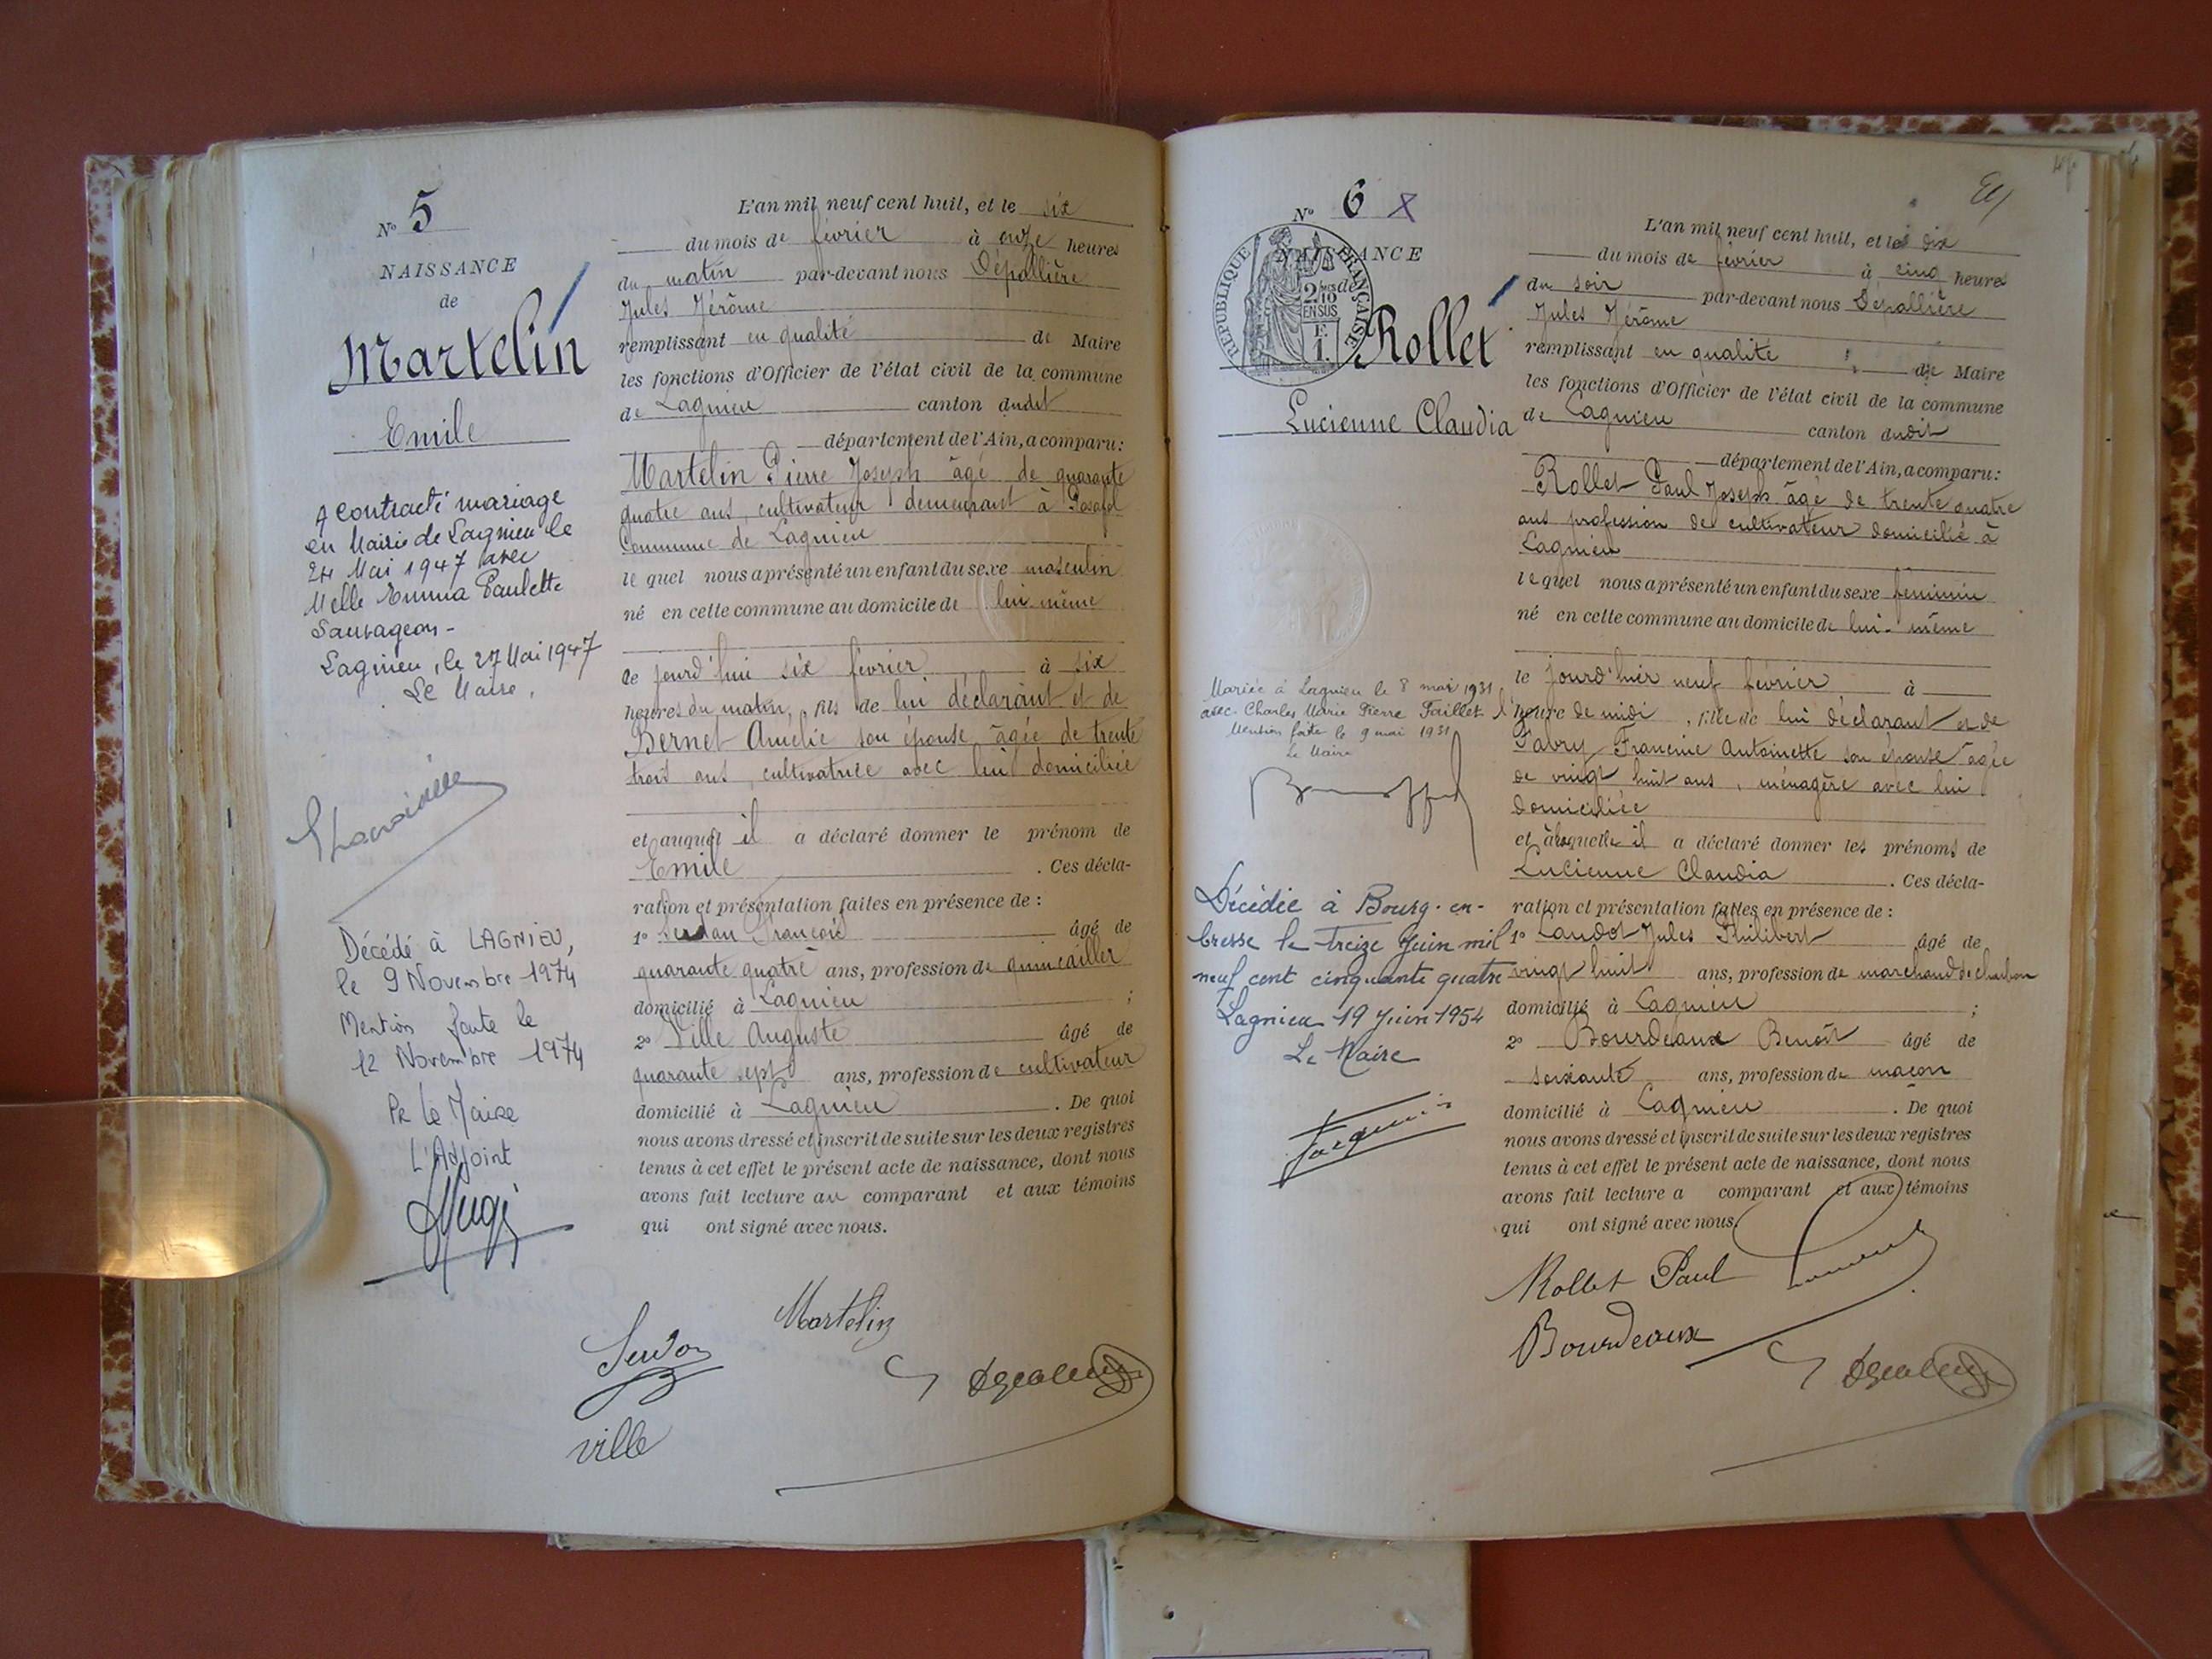 N° 5
NAISSANCE
de
Martelin
Emile
A contracté mariage
en Mairie de Lagnieu le
24 Mai 1947 avec
Melle Emma Paulette
Sauvageon -
Lagnieu, le 27 Mai 1947
Le Maire,
Décédé à LAGNIEU,
le 9 Novembre 1974
Mention faite le
12 Novembre 1974
Pr le Maire
L'Adjoint
L'an mil neuf cent huit, et le six
du mois de février à onze heures
du matin par-devant nous Dépallière
Jules Jérôme
remplissant en qualité de Maire
les fonctions d'Officier de l'état civil de la commune
de Lagnieu canton dudit
département de l'Ain, a comparu:
Martelin Pierre Joseph âgé de quarante
quatre ans, cultivateur demeurant à Posafol
Commune de Lagnieu
le quel nous a présenté un enfant du sexe masculin
né en cette commune au domicile de lui-même
ce jourd'hui six février à six
heures du matin, fils de lui déclarant et de
Bernet Amélie son épouse, âgée de trente
trois ans, cultivatrice avec lui domiciliée
et auquel il a déclaré donner le prénom de
Emile . Ces décla-
ration et présentation faites en présence de :
1° Serdon François âgé de
quarante quatre ans, profession de quincailler
domicilié à Lagnieu ;
2° Ville Auguste âgé de
quarante sept ans, profession de cultivateur
domicilié à Lagnieu . De quoi
nous avons dressé et inscrit de suite sur les deux registres
tenus à cet effet le présent acte de naissance, dont nous
avons fait lecture au comparant et aux témoins
qui ont signé avec nous.
Martelin
Serdon
ville
N° 6 X
NAISSANCE
de
RÉPUBLIQUE FRANÇAISE
2/10
EN SUS
F.
1.
Rollet
Lucienne Claudia
Mariée à Lagnieu le 8 mai 1931
avec Charles Marie Pierre Faillet
Mention faite le 9 mai 1931
Le Maire
Décédée à Bourg-en-
bresse le treize Juin mil
neuf cent cinquante quatre
Lagnieu 19 Juin 1954
Le Maire
L'an mil neuf cent huit, et le dix
du mois de février à cinq heures
du soir par-devant nous Dépallière
Jules Jérôme
remplissant en qualité de Maire
les fonctions d'Officier de l'état civil de la commune
de Lagnieu canton dudit
département de l'Ain, a comparu:
Rollet Paul Joseph âgé de trente quatre
ans profession de cultivateur domicilié à
Lagnieu
le quel nous a présenté un enfant du sexe féminin
né en cette commune au domicile de lui-même
le jourd'hier neuf février à
l'heure de midi, fille de lui déclarant et de
Fabry Francine Antoinette son épouse âgée
de vingt huit ans, ménagère avec lui
domiciliée
et à laquelle il a déclaré donner les prénoms de
Lucienne Claudia . Ces décla-
ration et présentation faites en présence de :
1° Landot Jules Philibert âgé de
vingt huit ans, profession de marchand de charbon
domicilié à Lagnieu ;
2° Bourdeaux Benoît âgé de
soixante ans, profession de maçon
domicilié à Lagnieu . De quoi
nous avons dressé et inscrit de suite sur les deux registres
tenus à cet effet le présent acte de naissance, dont nous
avons fait lecture a comparant et aux témoins
qui ont signé avec nous.
Rollet Paul
Bourdeaux